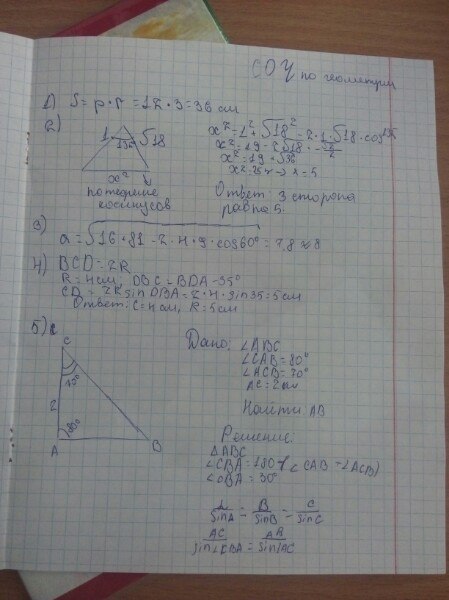 СОЧ по геометрии
1) S = p · r = 12 · 3 = 36 см
2)
1
√18
135°
x²
по теореме
косинусов
x² = 1² + √18² = 2 · 1 · √18 · cos135
x² = 19 - 2√18 · -√2/2
x² = 19 + √36
x² = 25 x = 5
Ответ: 3 сторона
равна 5.
3)
a = √16 + 81 - 2 · 4 · 9 · cos60° = 7,8 ≈ 8
4) BCD = 2R
R = 4см, DBC = BDA = 35°
CD = 2R sin DBA = 2 · 4 · sin35 = 5см
Ответ: C = 4см, R = 5см
5)
C
70°
2
80°
A
B
Дано: ∠ABC
∠CAB = 80°
∠ACB = 70°
AC = 2см
Найти: AB
Решение:
△ABC
∠CBA = 180 - (∠CAB = ∠ACB)
∠CBA = 30°
A/sinA = B/sinB = C/sinC
AC/sin∠CBA = AB/sin∠AC